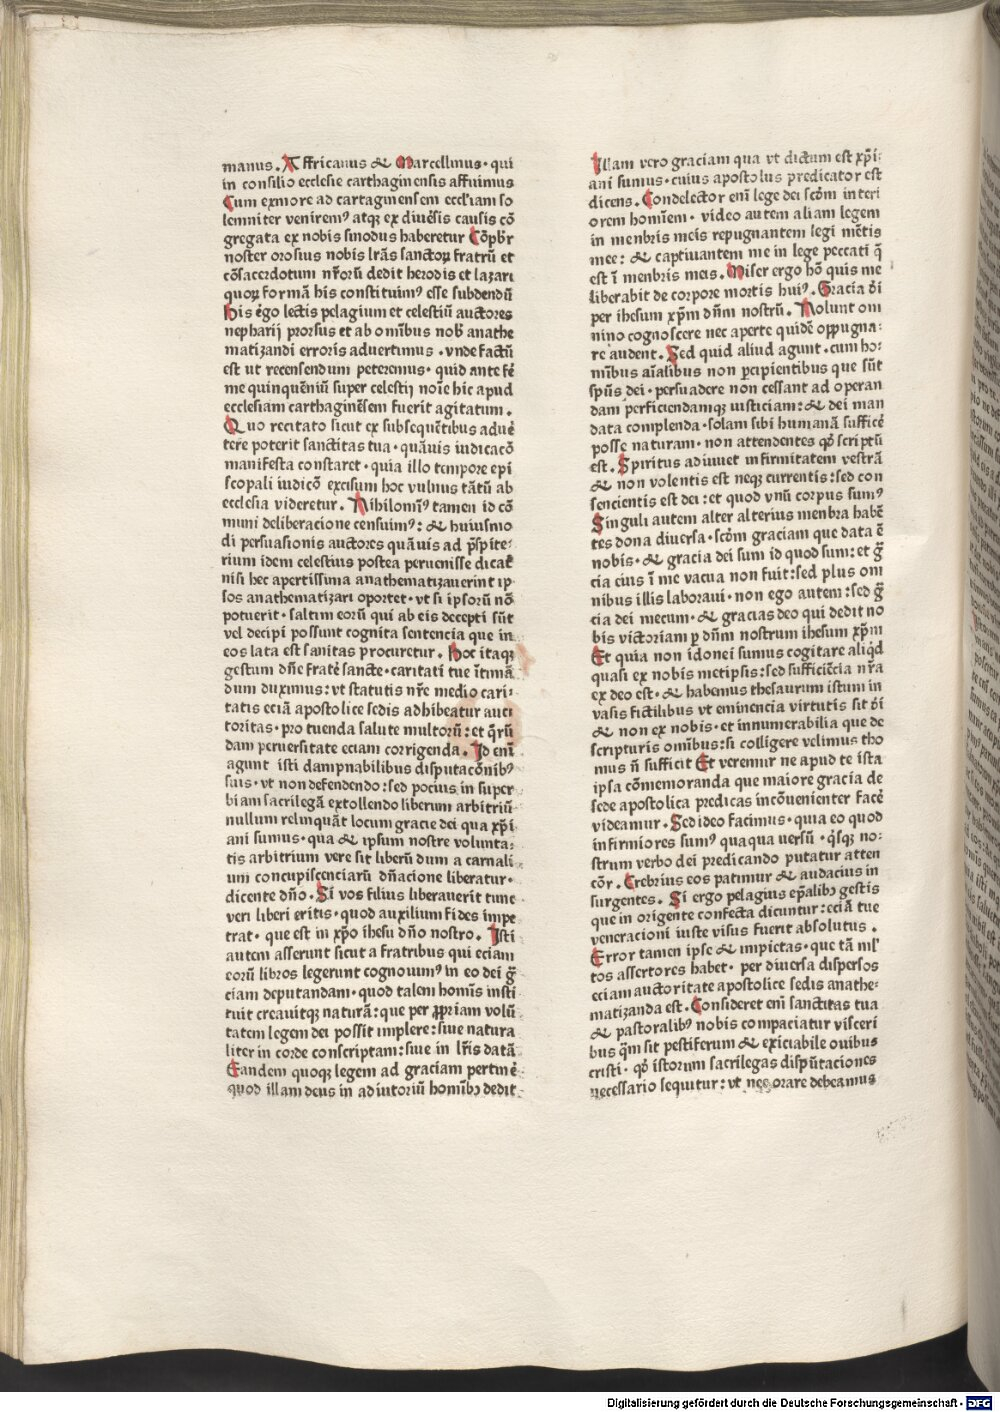 manus. Affricanus & Marcellinus· qui
in consilio ecclesie carthaginensis affuimus
Cum exmore ad cartaginensem eccl'iam so
lemniter veniremꝰ atqꝫ ex diuẽsis causis cõ
gregata ex nobis sinodus haberetur Cõpb̃r
noster orosius nobis lr̃as sanctoꝝ fratrũ et
cõsacerdotum nr̃orũ dedit herodis et lazari
quoꝝ formã hĩs constituimꝰ esse subdendũ
his ẽgo lectis pelagium et celestiũ auctores
nepharij prorsus et ab omĩbus nob̃ anathe
matizandi erroris aduertimus ·vnde factũ
est ut recensendum peteremus· quid ante fẽ
me quinquẽniũ super celestij noĩe hic apud
ecclesiam carthaginẽsem fuerit agitatum.
Quo recitato sicut ex subsequẽtibus aduẽ
tere poterit sanctitas tua· quãuis iudicacõ
manifesta constaret· quia illo tempore epi
scopali iudicõ excisum hoc vulnus tãtũ ab
ecclesia videretur. Nihilomĩꝰ tamen id cõ
muni deliberacione censuimꝰ: & huiusmo
di persuasionis auctores quãuis ad p̃spite:
rium idem celestius postea peruenisse dicat̃
nisi hec apertissima anathematizauerint ip
sos anathematizari oportet· vt si ipsorũ nõ
potuerit· saltim eorũ qui ab eis decepti sũt
vel decipi possunt cognita sentencia que in
eos lata est sanitas procuretur. Hoc itaqꝫ
gestum dñe fratẽ sancte· caritati tue ĩtimã
dum duximus: vt statutis nr̃e medio cari:
tatis eciã apostolice sedis adhibeatur auct
toritas· pro tuenda salute multorũ: et q̃rũ
dam peruersitate eciam corrigenda. Id enĩ
agunt isti dampnabilibus disputacõnibꝰ
suis· vt non defendendo: sed pocius in super
biam sacrilegã extollendo liberum arbitriũ
nullum relinquãt locum gracie dei qua xp̃i
ani sumus· qua & ipsum nostre volunta:
tis arbitrium vere sit liberũ dum a carnali
um concupiscenciarũ dñacione liberatur·
dicente dño. Si vos filius liberauerit tunc
veri liberi eritis· quod auxilium fides impe
trat· que est in xp̃o ihesu dño nostro. Isti
autem asserunt sicut a fratribus qui eciam
eorũ libros legerunt cognouimꝰ in eo dei g̃
ciam deputandam· quod talem homĩs insti
tuit creauitqꝫ naturã: que per ꝓpriam volũ
tatem legem dei possit implere: siue natura
liter in corde conscriptam: siue in lr̃is datã
Eandem quoqꝫ legem ad graciam pertinẽ
quod illam deus in adiutoriũ homĩbꝫ dedit
Illam vero graciam qua vt dictum est xp̃i:
ani sumus· cuius apostolus predicator est
dicens. Condelector enĩ lege dei scd̃m interi
orem homĩem· video autem aliam legem
in menbris meis repugnantem legi mẽtis
mee: & captiuantem me in lege peccati q̃
est ĩ menbris meis. Miser ergo hõ quis me
liberabit de corpore mortis huiꝰ. Gracia d̃i
per ihesum xp̃m dñm nostrũ. Nolunt om
nino cognoscere nec aperte quidẽ oppugna:
re audent. Sed quid aliud agunt· cum ho:
mĩbus aĩalibus non ꝑcipientibus que sũt
spũs dei· persuadere non cessant ad operan
dam perficiendamqꝫ iusticiam: & dei man
data complenda· solam sibi humanã sufficẽ
posse naturam· non attendentes qd̃ scriptũ
est. Spiritus adiuuet infirmitatem vestrã
& non volentis est neqꝫ currentis: sed con
sencientis est dei: et quod vnũ corpus sumꝰ
Singuli autem alter alterius menbra habẽ
tes dona diuersa· scd̃m graciam que data ẽ
nobis· & gracia dei sum id quod sum: et g̃
cia eius ĩ me vacua non fuit: sed plus om
nibus illis laboraui· non ego autem: sed g̃
cia dei mecum· & gracias deo qui dedit no
bis victoriam ꝑ dñm nostrum ihesum xp̃m
Et quia non idonei sumus cogitare aliq̃d
quasi ex nobis metipsis: sed sufficiẽcia nr̃a
ex deo est· & habemus thesaurum istum in
vasis fictilibus vt eminencia virtutis sit d̃i
& non ex nobis· et innumerabilia que de
scripturis omĩbus: si colligere velimus tho
mus ñ sufficit Et veremur ne apud te ista
ipsa cõmemoranda que maiore gracia de
sede apostolica predicas incõuenienter facẽ
videamur· Sed ideo facimus· quia eo quod
infirmiores sumꝰ quaqua versũ· q̃sqꝫ no:
strum verbo dei predicando putatur atten
cõr. Crebrius eos patimur & audacius in
surgentes. Si ergo pelagius ep̃alibꝫ gestis
que in origente confecta dicuntur: eciã tue
veneracioni iuste visus fuerit absolutus.
Error tamen ipse & impietas· que tã ml̃
tos assertores habet· per diuersa dispersos
eciam auctoritate apostolice sedis anathe:
matizanda est. Consideret enĩ sanctitas tua
& pastoralibꝰ nobis compaciatur visceri
bus q̃m sit pestiferum & exiciabile ouibus
cristi· qd̃ istorum sacrilegas dispũtaciones
necessario sequitur: vt nec orare debeamus
Digitalisierung gefördert durch die Deutsche Forschungsgemeinschaft - DFG